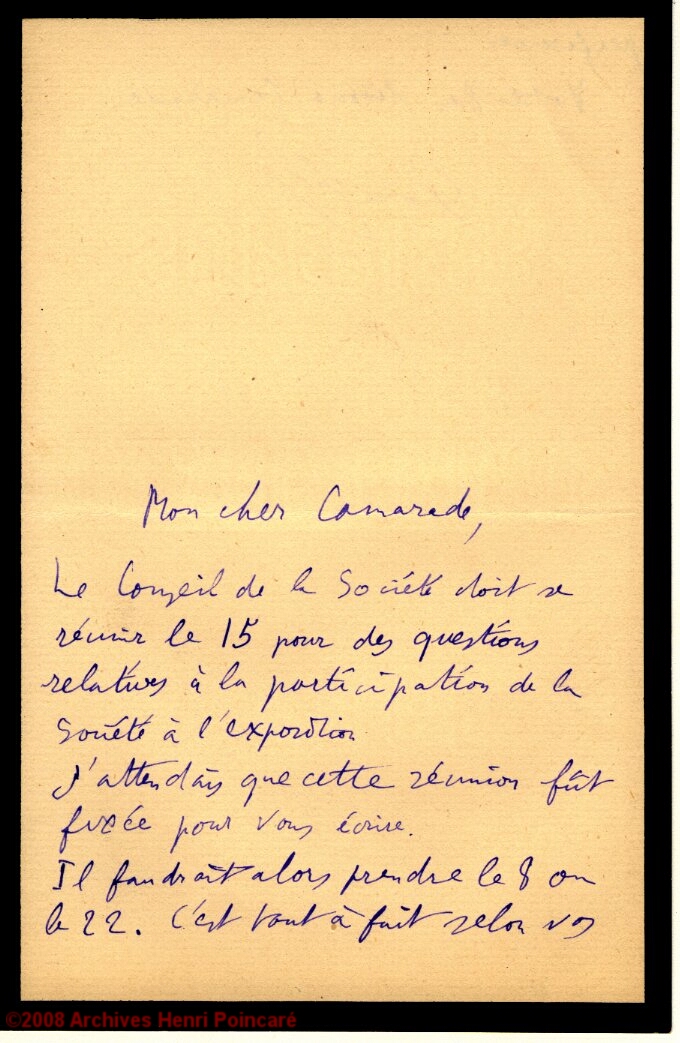 Mon cher Camarade,
Le Conseil de la Société doit se
réunir le 15 pour des questions
relatives à la participation de la
Société à l'exposition
J'attendais que cette réunion fût
fixée pour vous écrire.
Il faudrait alors prendre le 8 ou
le 22. C'est tout à fait selon vos
©2008 Archives Henri Poincaré